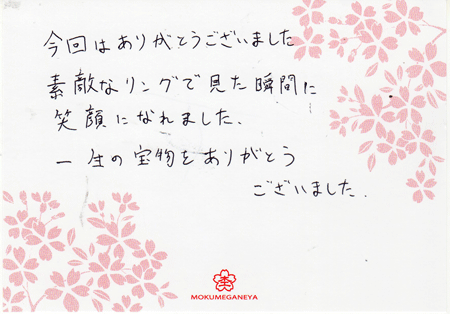 今回はありがとうございました
素敵なリングで見た瞬間に
笑顔になれました.
一生の宝物をありがとう
ございました.
MOKUMEGANEYA